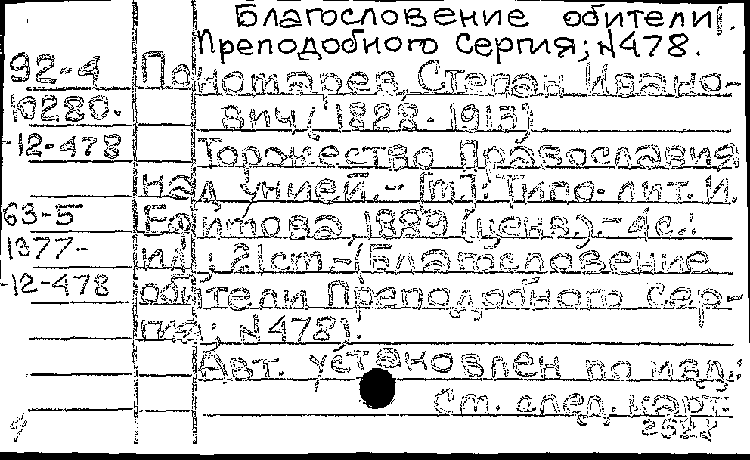 Благословение обители
Преподобного Сергия; N478.
92-4 Пономарев, Степан Ивано-
10280. вич (1828-1913)
-12-478 Торжество Православия
над унией. - [м]: Типо-лит. И.
63-5 Ефимова, 1889 (ценз.). - 4с.:
1377- ил; 21см. - (Благословение
-12-478 обители Преподобного Сер-
гия; N478).
Авт. установлен по изд.:
См. след. карт.